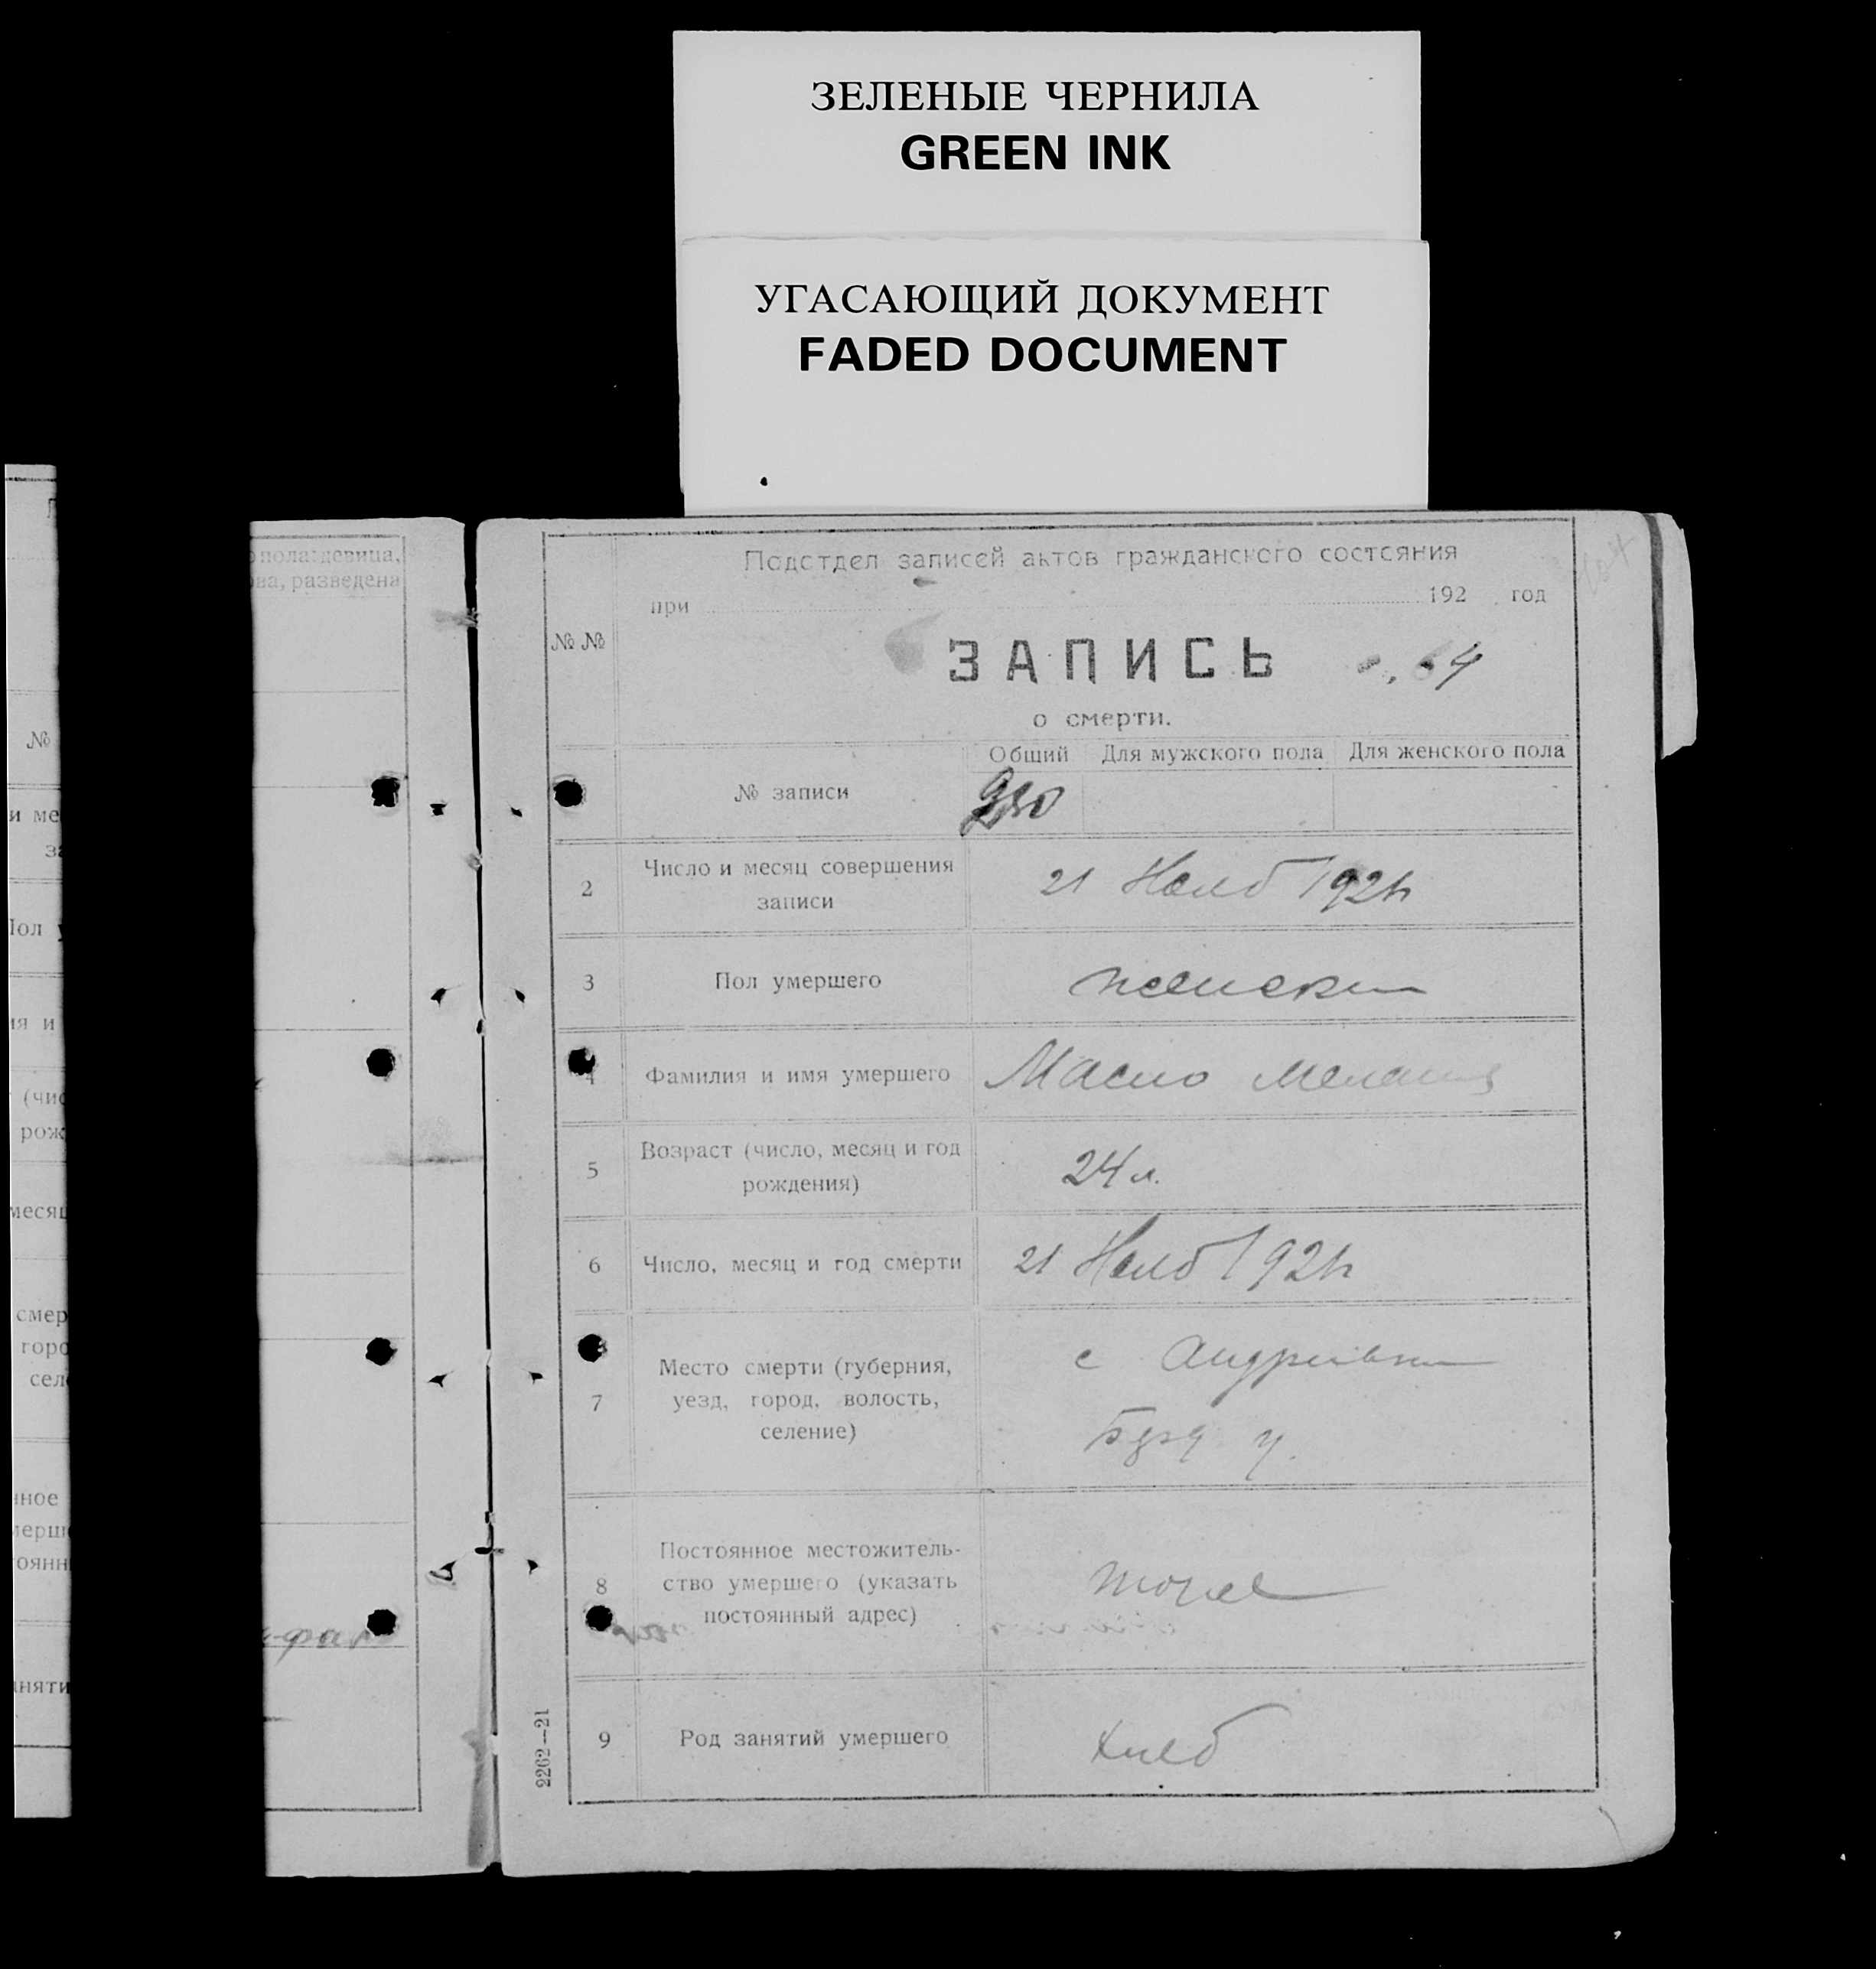 ЗЕЛЕНЫЕ ЧЕРНИЛА
GREEN INK
УГАСАЮЩИЙ ДОКУМЕНТ
FADED DOCUMENT
пола: девица,
ва, разведена
№
и ме
за
Пол у
ия и
(чис
рож
месяц
смер
горо
сел
ное
мерш
оянн
няти
Подотдел записей актов гражданского состояния
при 192 год
№ №
ЗАПИСЬ
64
о смерти.
Общий Для мужского пола Для женского пола
№ записи
2 Число и месяц совершения записи 21 Нояб 192
3 Пол умершего женский
4 Фамилия и имя умершего Масло
5 Возраст (число, месяц и год рождения) 24 л.
6 Число, месяц и год смерти 21 Нояб 192
7 Место смерти (губерния, уезд, город, волость, селение) с Андреевки
у.
8 Постоянное местожительство умершего (указать постоянный адрес) тоже
9 Род занятий умершего хлеб
2262—21